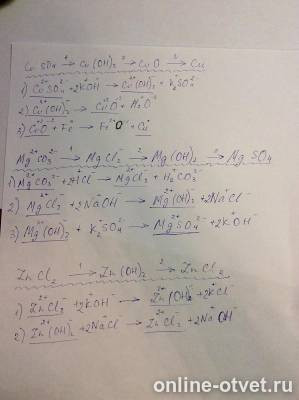 CuSO₄ →¹ Cu(OH)₂ →² CuO →³ Cu
1) CuSO₄ + 2KOH → Cu(OH)₂ + K₂SO₄
2) Cu(OH)₂ → CuO + H₂O
3) CuO + Fe → FeO + Cu
MgCO₃ →¹ MgCl₂ →² Mg(OH)₂ →³ MgSO₄
1) MgCO₃ + 2HCl → MgCl₂ + H₂CO₃
2) MgCl₂ + 2NaOH → Mg(OH)₂ + 2NaCl
3) Mg(OH)₂ + K₂SO₄ → MgSO₄ + 2KOH
ZnCl₂ →¹ Zn(OH)₂ →² ZnCl₂
1) ZnCl₂ + 2KOH → Zn(OH)₂ + 2KCl
2) Zn(OH)₂ + 2NaCl → ZnCl₂ + 2NaOH
online-otvet.ru